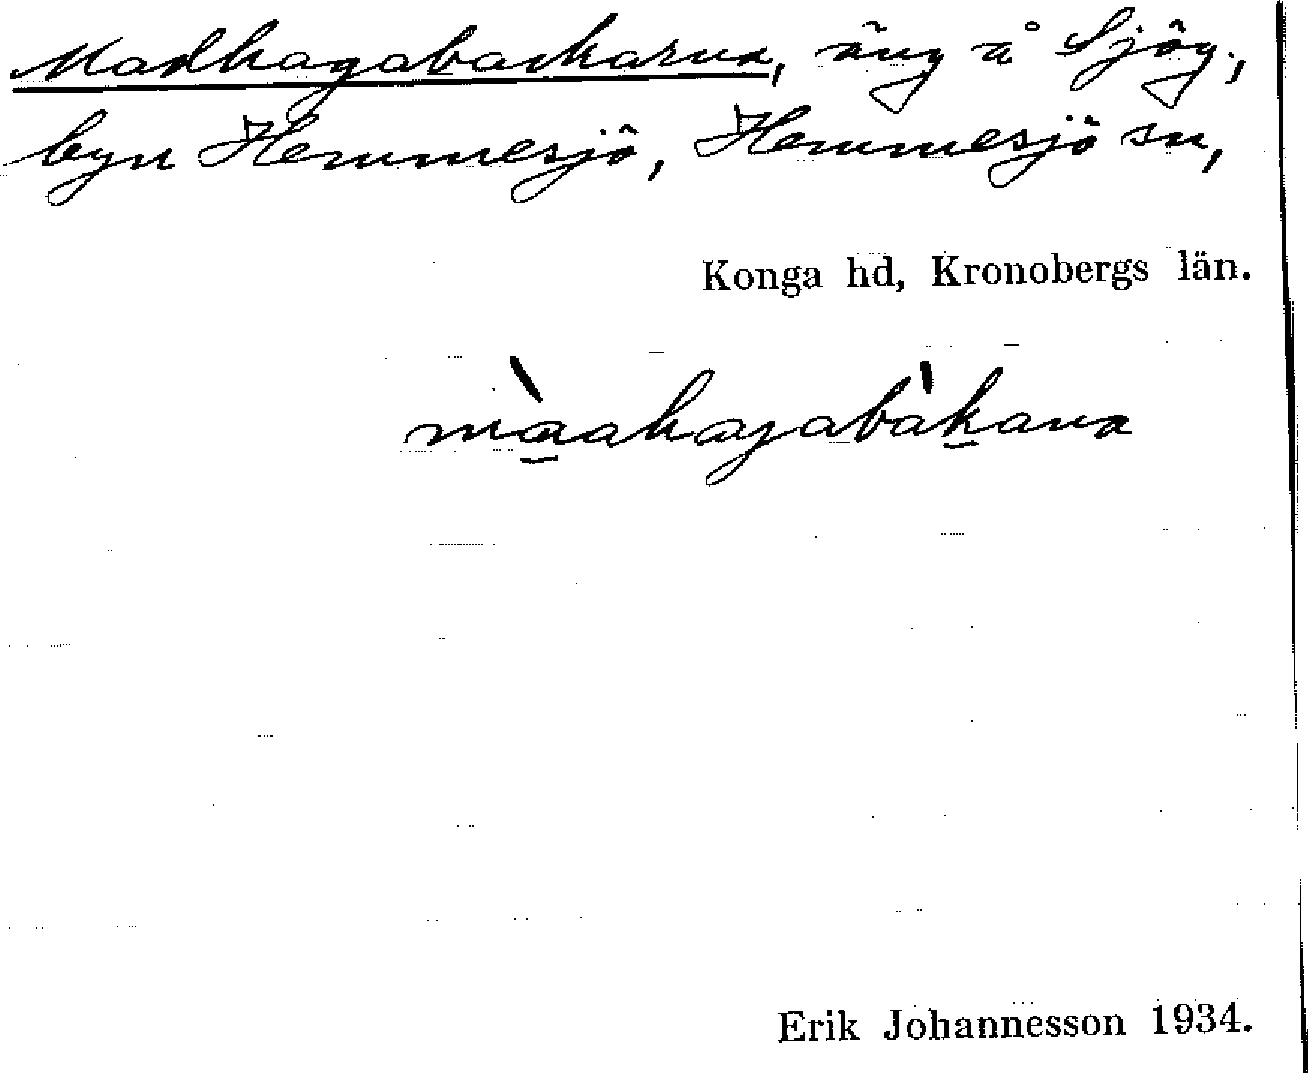 Madhagabackarna, äng å Sjög.,
byn Hemmesjö, Hemmesjö sn,
Konga hd, Kronobergs län.
màahagabàkana
Erik Johannesson 1934.